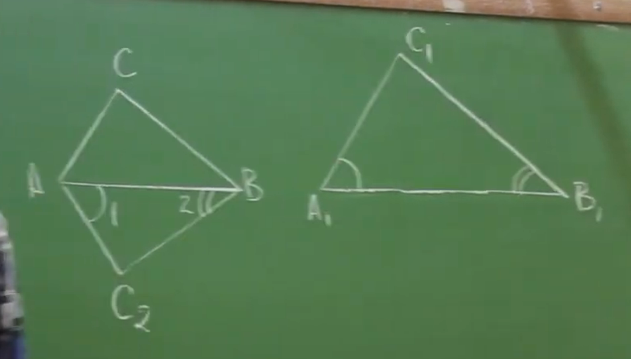 C
A
B
1
2
C₂
C₁
A₁
B₁